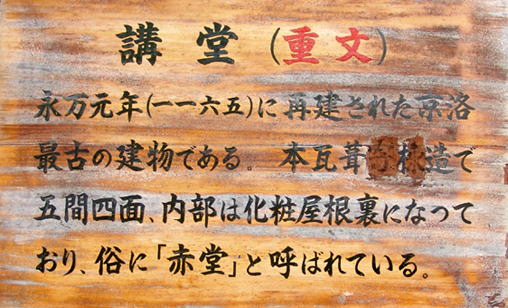 講堂（重文）
永万元年(一一六五)に再建された京洛
最古の建物である。本瓦葺寄棟造で
五間四面、内部は化粧屋根裏になって
おり、俗に「赤堂」と呼ばれている。